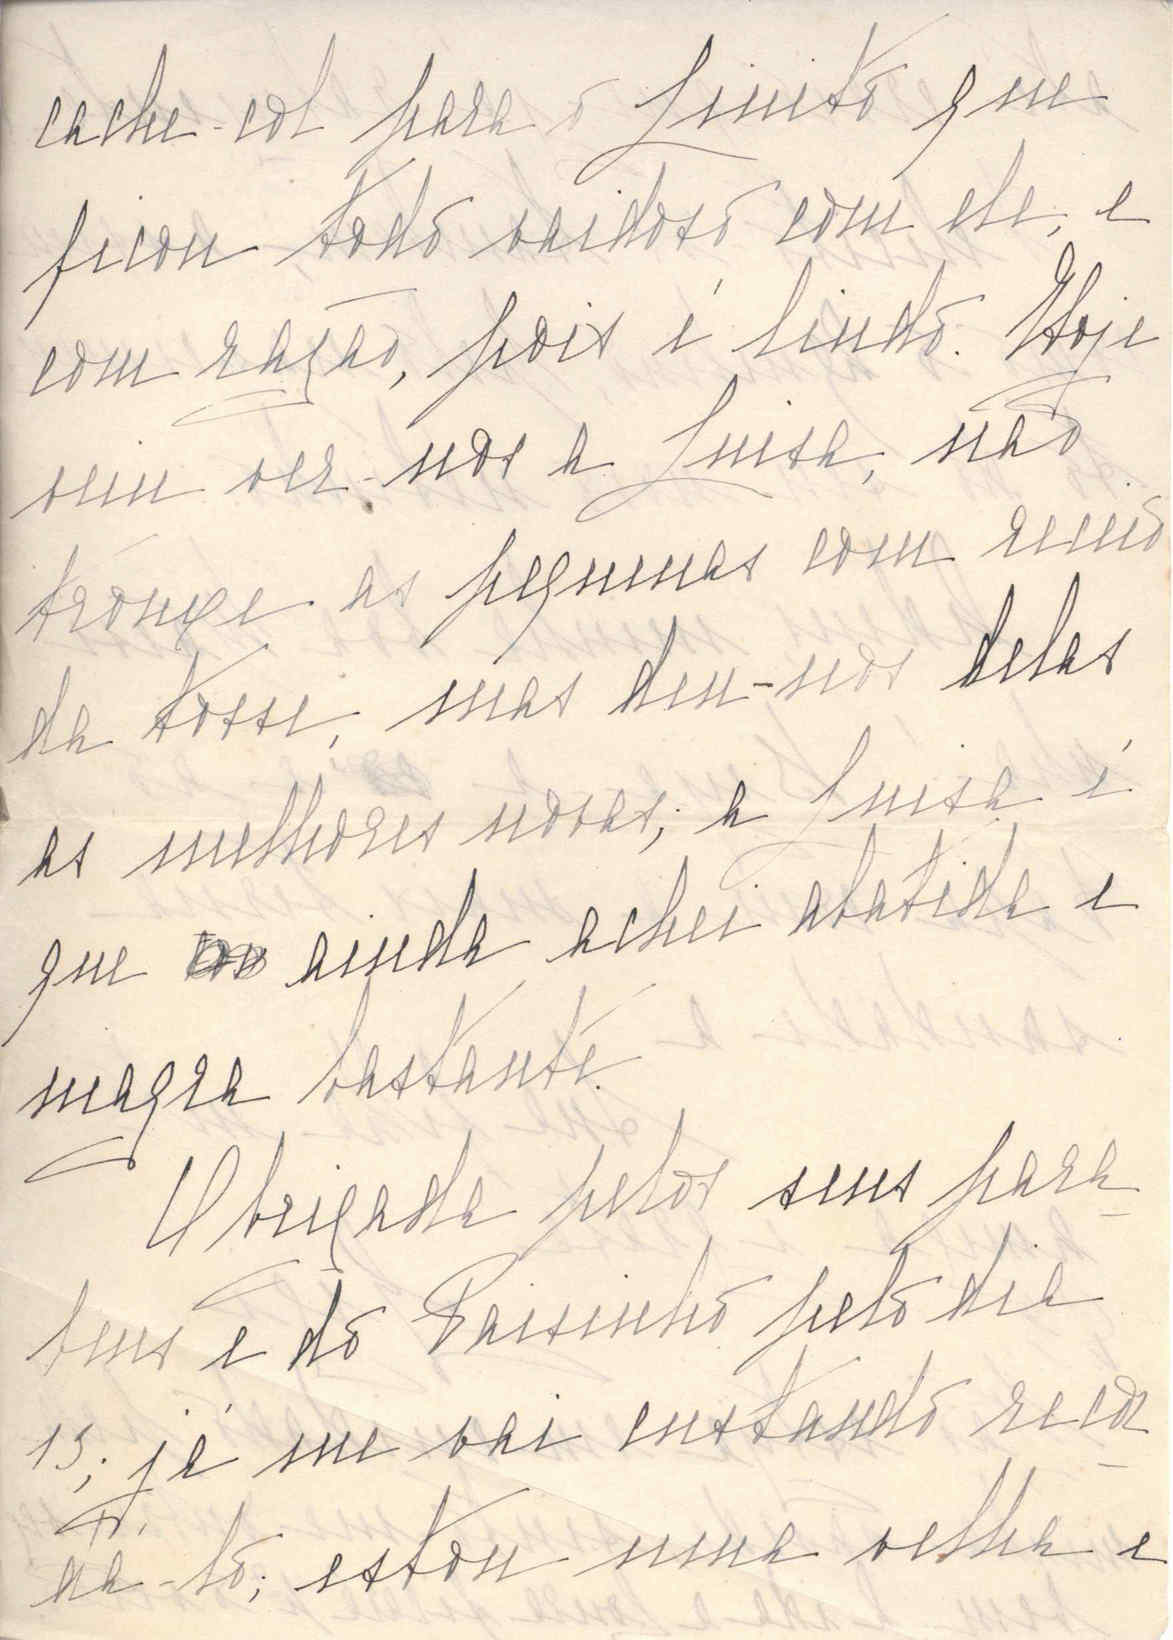 cache-col para o Luisito que
ficou todo vaidoso com ele, e
com razão, pois é lindo. Hoje
veiu ver-nos a Luisa, não
trouxe as pequenas com receio
da tosse, mas deu-nos delas
as melhores novas; a Luisa é
que ainda achei abatida e
magra bastante.
Obrigada pelos seus para-
bens e do Paisinho pelo dia
13; já me vai custando recor-
da-lo; estou uma velha e